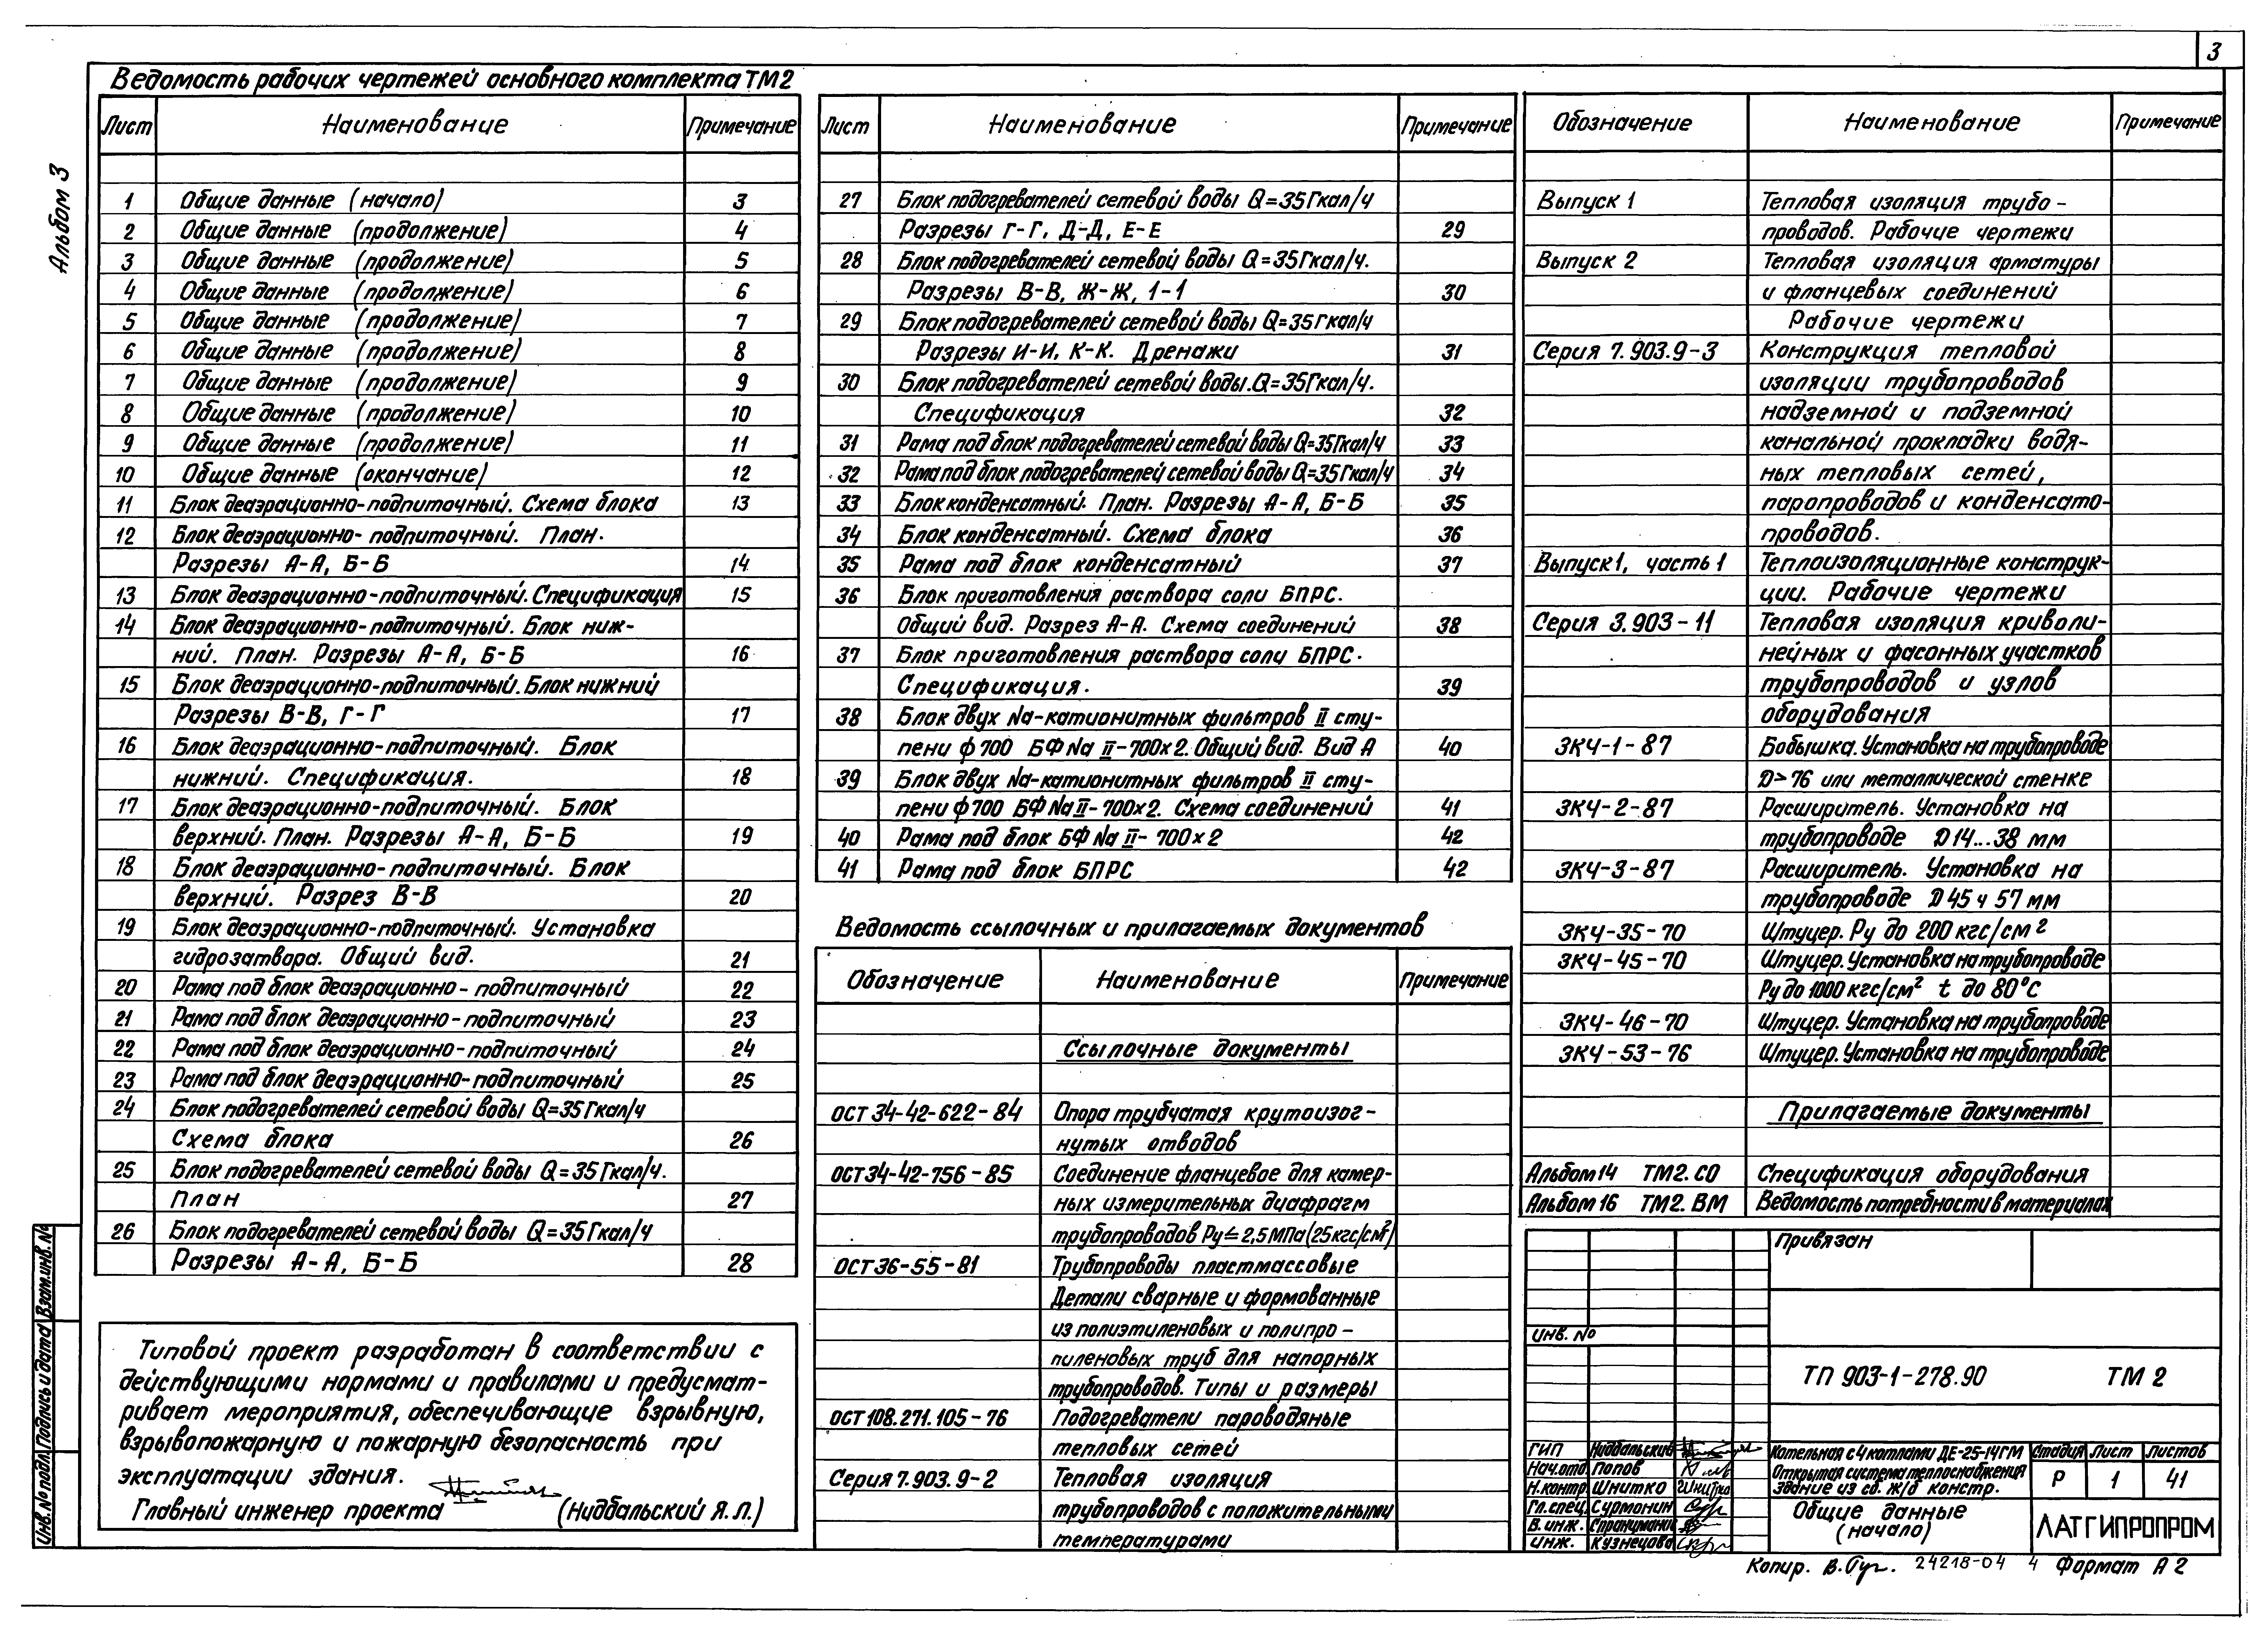 3
Альбом 3
Ведомость рабочих чертежей основного комплекта ТМ2
Лист Наименование Примечание
1 Общие данные (начало) 3
2 Общие данные (продолжение) 4
3 Общие данные (продолжение) 5
4 Общие данные (продолжение) 6
5 Общие данные (продолжение) 7
6 Общие данные (продолжение) 8
7 Общие данные (продолжение) 9
8 Общие данные (продолжение) 10
9 Общие данные (продолжение) 11
10 Общие данные (окончание) 12
11 Блок деаэрационно-подпиточный. Схема блока 13
12 Блок деаэрационно-подпиточный. План.
Разрезы А-А, Б-Б 14
13 Блок деаэрационно-подпиточный. Спецификация 15
14 Блок деаэрационно-подпиточный. Блок ниж-
ний. План. Разрезы А-А, Б-Б 16
15 Блок деаэрационно-подпиточный. Блок нижний
Разрезы В-В, Г-Г 17
16 Блок деаэрационно-подпиточный. Блок
нижний. Спецификация. 18
17 Блок деаэрационно-подпиточный. Блок
верхний. План. Разрезы А-А, Б-Б 19
18 Блок деаэрационно-подпиточный. Блок
верхний. Разрез В-В 20
19 Блок деаэрационно-подпиточный. Установка
гидрозатвора. Общий вид. 21
20 Рама под блок деаэрационно-подпиточный 22
21 Рама под блок деаэрационно-подпиточный 23
22 Рама под блок деаэрационно-подпиточный 24
23 Рама под блок деаэрационно-подпиточный 25
24 Блок подогревателей сетевой воды Q=35Гкал/ч
Схема блока 26
25 Блок подогревателей сетевой воды Q=35Гкал/ч.
План 27
26 Блок подогревателей сетевой воды Q=35Гкал/ч
Разрезы А-А, Б-Б 28
Типовой проект разработан в соответствии с
действующими нормами и правилами и предусмат-
ривает мероприятия, обеспечивающие взрывную,
взрывопожарную и пожарную безопасность при
эксплуатации здания.
Главный инженер проекта (Нидбальский Я.Л.)
Лист Наименование Примечание
27 Блок подогревателей сетевой воды Q=35Гкал/ч
Разрезы Г-Г, Д-Д, Е-Е 29
28 Блок подогревателей сетевой воды Q=35Гкал/ч.
Разрезы В-В, Ж-Ж, 1-1 30
29 Блок подогревателей сетевой воды Q=35Гкал/ч
Разрезы И-И, К-К. Дренажи 31
30 Блок подогревателей сетевой воды. Q=35Гкал/ч.
Спецификация 32
31 Рама под блок подогревателей сетевой воды Q=35Гкал/ч 33
32 Рама под блок подогревателей сетевой воды Q=35Гкал/ч 34
33 Блок конденсатный. План. Разрезы А-А, Б-Б 35
34 Блок конденсатный. Схема блока 36
35 Рама под блок конденсатный 37
36 Блок приготовления раствора соли БПРС.
Общий вид. Разрез А-А. Схема соединений 38
37 Блок приготовления раствора соли БПРС.
Спецификация. 39
38 Блок двух Na-катионитных фильтров II сту-
пени ф700 БФNa II-700х2. Общий вид. Вид А 40
39 Блок двух Na-катионитных фильтров II сту-
пени ф700 БФNa II-700х2. Схема соединений 41
40 Рама под блок БФNa II-700х2 42
41 Рама под блок БПРС 42
Ведомость ссылочных и прилагаемых документов
Обозначение Наименование Примечание
Ссылочные документы
ОСТ 34-42-622-84 Опора трубчатая крутоизог-
нутых отводов
ОСТ 34-42-756-85 Соединение фланцевое для камер-
ных измерительных диафрагм
трубопроводов Ру≤2,5МПа (25кгс/см²)
ОСТ 36-55-81 Трубопроводы пластмассовые
Детали сварные и формованные
из полиэтиленовых и полипро-
пиленовых труб для напорных
трубопроводов. Типы и размеры
ОСТ 108.271.105-76 Подогреватели пароводяные
тепловых сетей
Серия 7.903.9-2 Тепловая изоляция
трубопроводов с положительными
температурами
Обозначение Наименование Примечание
Выпуск 1 Тепловая изоляция трубо-
проводов. Рабочие чертежи
Выпуск 2 Тепловая изоляция арматуры
и фланцевых соединений
Рабочие чертежи
Серия 7.903.9-3 Конструкция тепловой
изоляции трубопроводов
надземной и подземной
канальной прокладки водя-
ных тепловых сетей,
паропроводов и конденсато-
проводов.
Выпуск 1, часть 1 Теплоизоляционные конструк-
ции. Рабочие чертежи
Серия 3.903-11 Тепловая изоляция криволи-
нейных и фасонных участков
трубопроводов и узлов
оборудования
ЗКЧ-1-87 Бобышка. Установка на трубопроводе
D>76 или металлической стенке
ЗКЧ-2-87 Расширитель. Установка на
трубопроводе D14...38 мм
ЗКЧ-3-87 Расширитель. Установка на
трубопроводе D45 и 57мм
ЗКЧ-35-70 Штуцер. Ру до 200кгс/см²
ЗКЧ-45-70 Штуцер. Установка на трубопроводе
Ру до 1000 кгс/см² t до 80°С
ЗКЧ-46-70 Штуцер. Установка на трубопроводе
ЗКЧ-53-76 Штуцер. Установка на трубопроводе
Прилагаемые документы
Альбом 14 ТМ2.СО Спецификация оборудования
Альбом 16 ТМ2.ВМ Ведомость потребности в материалах
Привязан
Инв. №
ТП 903-1-278.90 ТМ 2
ГИП Нидбальский
Нач.отд. Попов
Н.контр. Шнитко
Гл.спец. Сурмонин
В.инж.
Инж. Кузнецова
Котельная с 4 котлами ДЕ-25-14ГМ
Открытая система теплоснабжения
Здание из сб. ж/б констр.
Стадия Лист Листов
Р 1 41
Общие данные
(начало)
ЛАТГИПРОПРОМ
Копир. 24218-04 4 Формат А2
Инв.№ подл. Подпись и дата Взам.инв.№